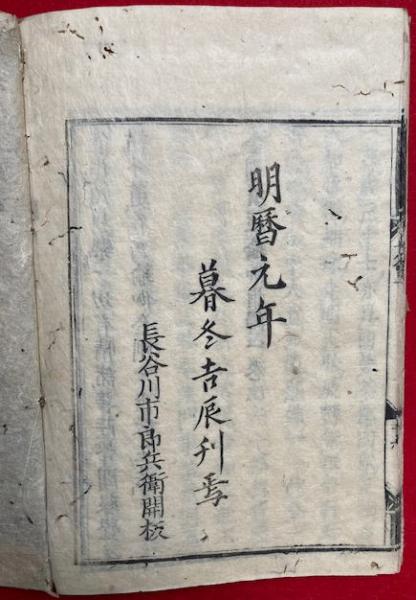 明暦元年
暮冬吉辰刊焉
長谷川市郎兵衛開板